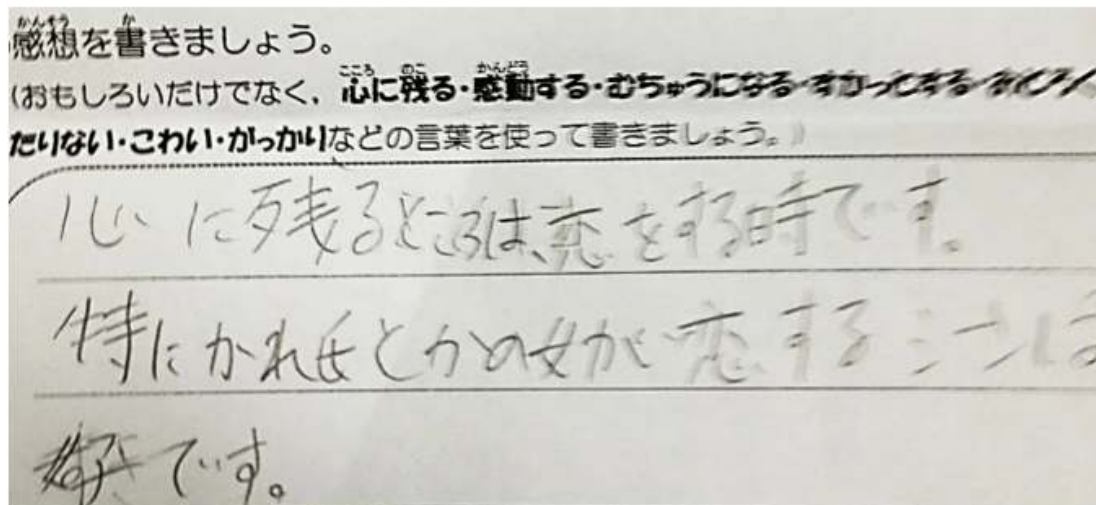 感想を書きましょう。
(おもしろいだけでなく、心に残る・感動する・むちゅうになる・すかっとする
たりない・こわい・がっかりなどの言葉を使って書きましょう。)
心に残るところは、恋をする時です。
特にかれ氏とかの女が恋するシーンは
好きです。